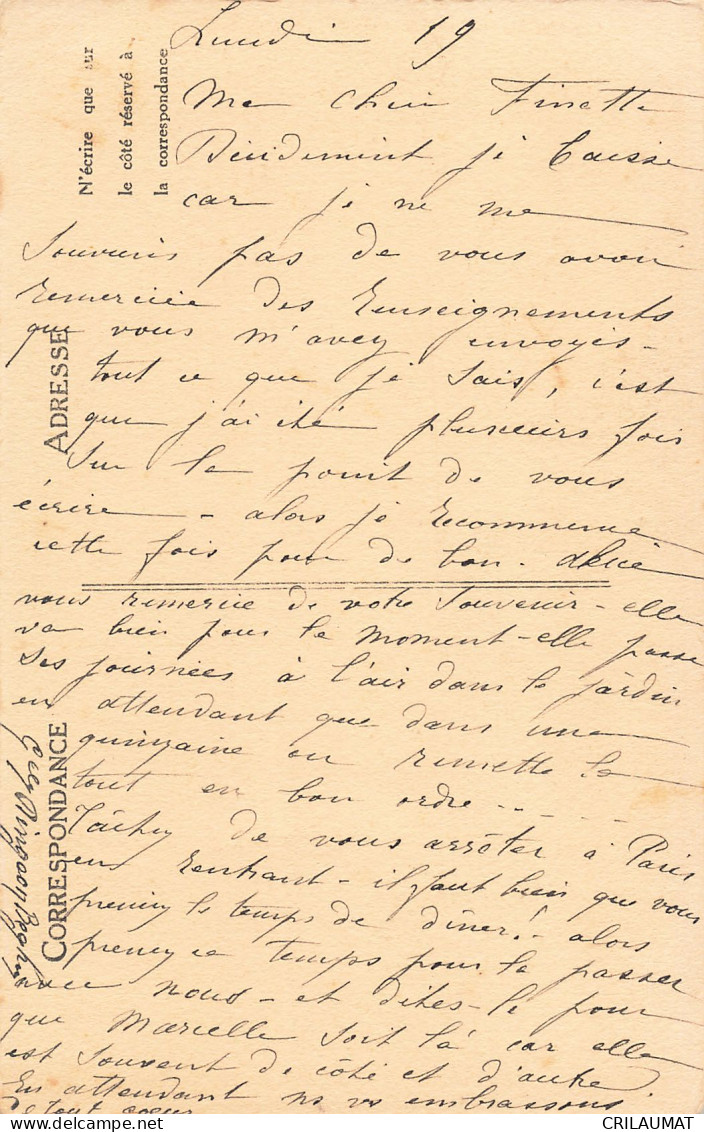 N'écrire que sur
le côté réservé à
la correspondance
ADRESSE
CORRESPONDANCE
Lundi 19
Ma chère Finette
Décidement je baisse
car je ne me
souviens pas de vous avoir
remerciée des renseignements
que vous m'avez envoyés -
tout ce que je sais, c'est
que j'ai été plusieurs fois
sur le point de vous
écrire - alors je recommence
cette fois pour de bon.
vous remercie de votre souvenir - elle
va bien pour le moment - elle passe
ses journées à l'air dans le jardin
en attendant que dans une
quinzaine on remette le
tout en bon ordre - - - -
Tâchez de vous arrêter à Paris
en rentrant - il faut bien que vous
preniez le temps de dîner! alors
prenez ce temps pour le passer
avec nous - et dites-le pour
que Marcelle soit là car elle
est souvent de côté et d'autre
En attendant ns vs embrassons
de tout coeur
CRILAUMAT